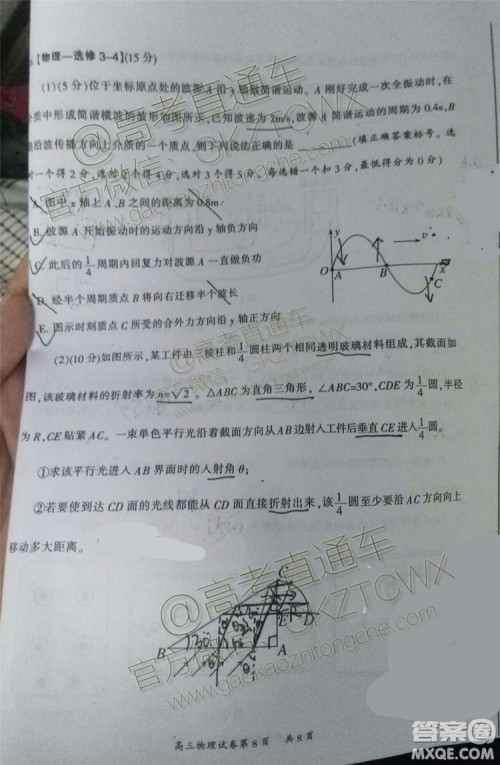 【物理—选修 3-4】(15 分)
(1)(5 分)位于坐标原点处的波源 A 沿 y 轴做简谐运动。A 刚好完成一次全振动时,在
介质中形成简谐横波的波形如图所示,已知波速为 2m/s,波源 A 简谐运动的周期为 0.4s,B
是沿波传播方向上介质的一个质点,则下列说法正确的是 (填正确答案标号。选
对一个得 2 分,选对 2 个得 4 分,选对 3 个得 5 分。每选错一个扣 3 分,最低得分为 0 分)
A. 图中 x 轴上 A、B 之间的距离为 0.8m
B. 波源 A 开始振动时的运动方向沿 y 轴负方向
C. 此后的 1/4 周期内回复力对波源 A 一直做负功
D. 经半个周期质点 B 将向右迁移半个波长
E. 图示时刻质点 C 所受的合外力方向沿 y 轴正方向
y
v
O A B C x
(2)(10 分)如图所示,某工件由三棱柱和 1/4 圆柱两个相同透明玻璃材料组成,其截面如
图,该玻璃材料的折射率为 n=√2 。△ABC 为直角三角形,∠ABC=30°,CDE 为 1/4 圆,半径
为 R,CE 贴紧 AC。一束单色平行光沿着截面方向从 AB 边射入工件后垂直 CE 进入 1/4 圆。
①求该平行光进入 AB 界面时的入射角 θ;
②若要使到达 CD 面的光线都能从 CD 面直接折射出来,该 1/4 圆至少要沿 AC 方向向上
移动多大距离。
C
E D
B A
高三物理试卷第 8 页 共 8 页
@高考直通车
官方微信:GKZTCWX
www.gaokaozhitongche.com
@高考直通车
官方微信:GKZTCWX
www.gaokaozhitongche.com
答案圈
MXQE.COM